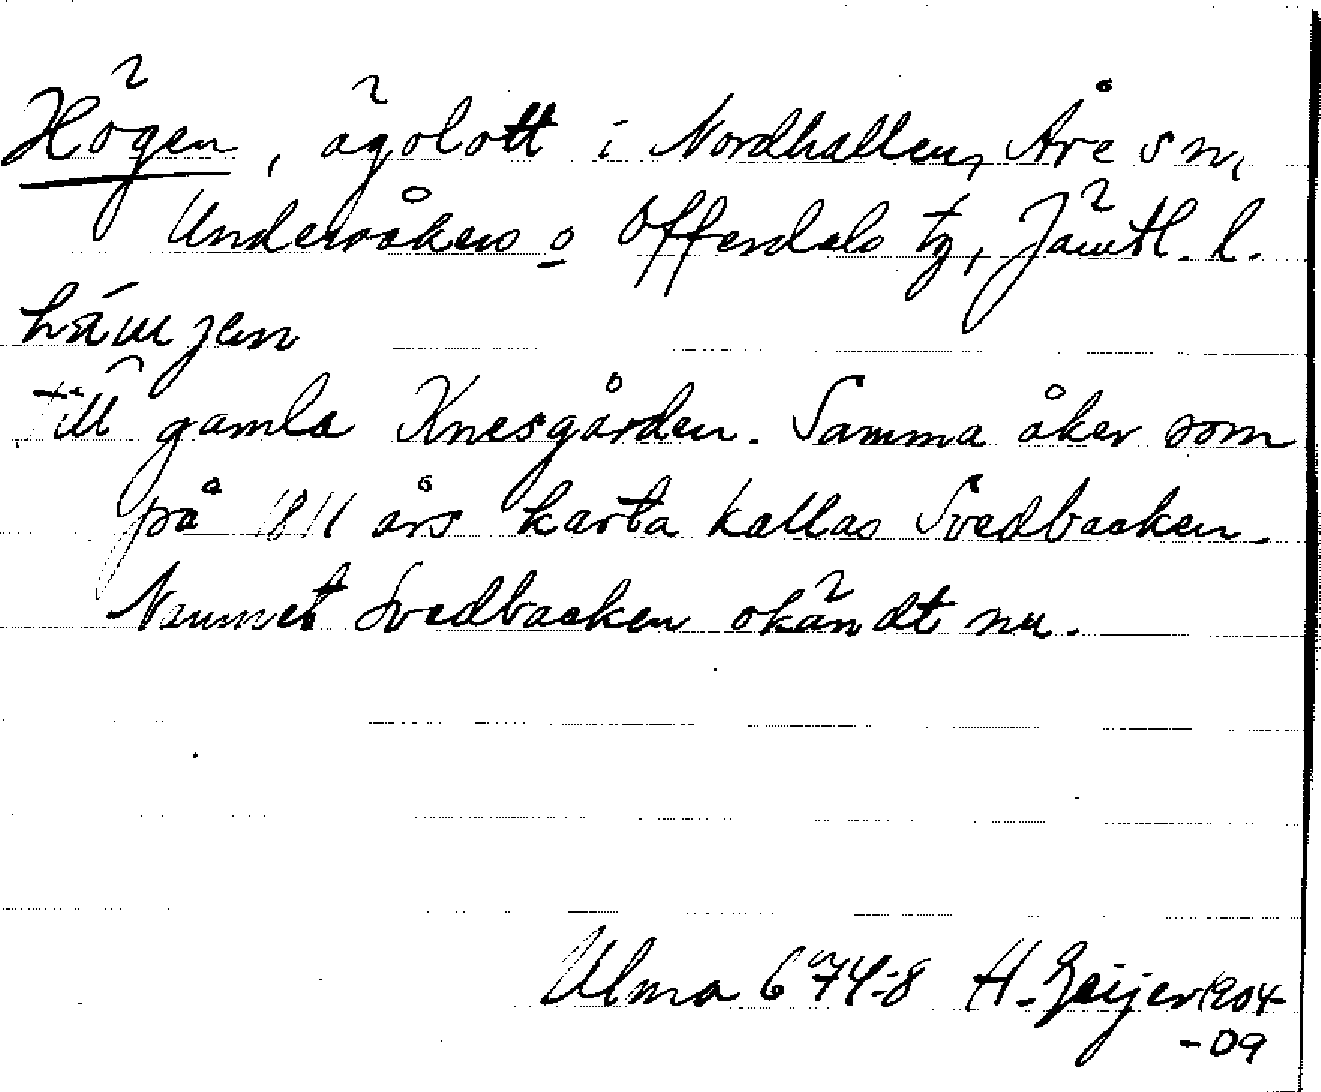 Högen, ägolott i Nordhallen, Åre sn,
Undersåkers o Offerdals tg, Jämtl. l.
till gamla Knesgården. Samma åker som
på 1811 års karta kallas Svedbacken.
Namnet Svedbacken okändt nu.
Ulma 674:8 H. Geijer 1904
-09